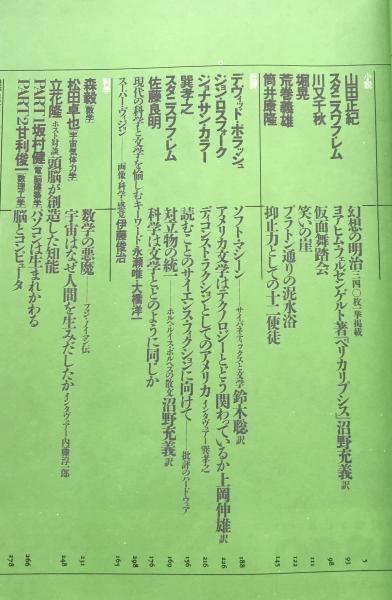 小説
山田正紀 幻想の明治 三四〇枚一挙掲載 5
スタニスワフ・レム ヨアヒム・フェルセンゲルト著『ペリカリプシス』 沼野充義訳 93
川又千秋 仮面舞踏会 98
堀晃 笑いの崖 111
荒巻義雄 プラトン通りの泥水浴 122
筒井康隆 抑止力としての十二使徒 145
批評
デイヴィッド・ポラッシュ ソフト・マシーン サイバネティックスと文学 鈴木聡訳 188
ジョン・ロスフォーク アメリカ文学はテクノロジーとどう関わっているか 上岡伸雄訳 226
ジョナサン・カラー ディコンストラクションとしてのアメリカ インタヴュアー 巽孝之 216
巽孝之 読むことのサイエンス・フィクションに向けて──批評のハードウェア 156
スタニスワフ・レム 対立物の統一──ホルヘ・ルイス・ボルヘスの散文 沼野充義訳 169
佐藤良明 科学は文学とどのように同じか 176
現代の科学と文学を愉しむキーワード 永瀬唯・大橋洋一 298
スーパー・ヴィジョン──画像・科学・感覚 伊藤俊治 165
科学
森毅[数学] 数学の悪魔 フォン・ノイマン伝 231
松田卓也[宇宙気体力学] 宇宙はなぜ人間を生みだしたか インタヴュアー 内藤淳一郎 248
立花隆 ホスト対談 頭脳が創造した知能
PART・1 坂村健[電脳建築学] パソコンは生まれかわる 266
PART・2 甘利俊一[数理工学] 脳とコンピュータ 278